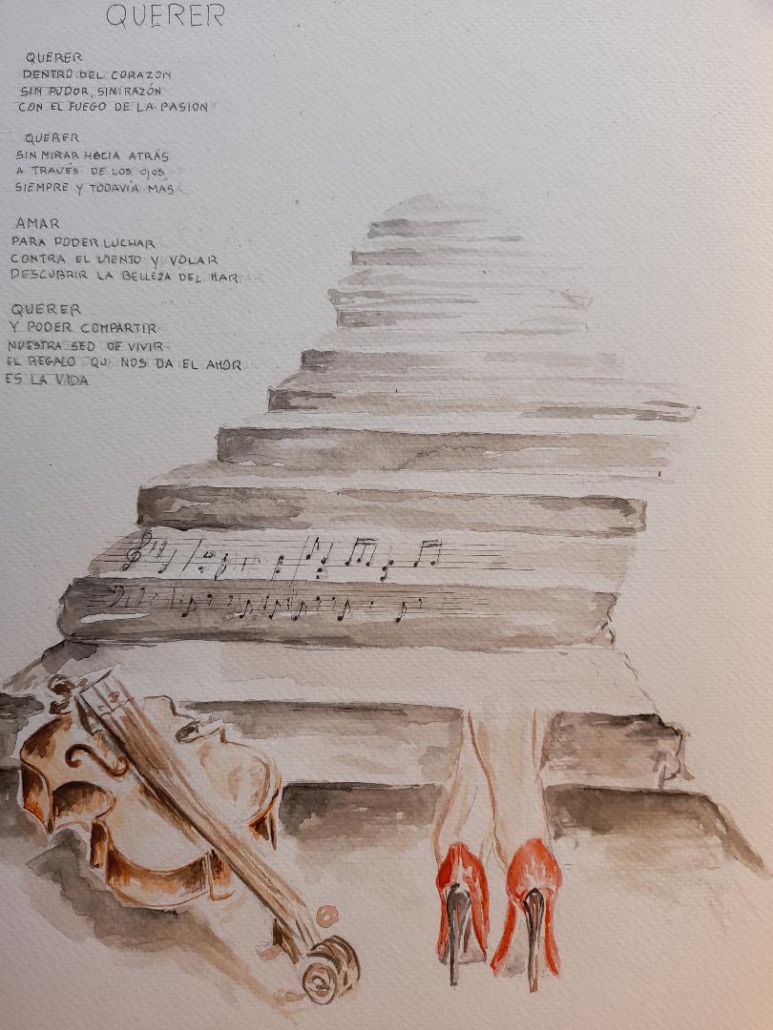 QUERER
QUERER
DENTRO DEL CORAZON
SIN PUDOR, SIN RAZÓN
CON EL FUEGO DE LA PASION
QUERER
SIN MIRAR HACIA ATRÁS
A TRAVÉS DE LOS OJOS
SIEMPRE Y TODAVÍA MAS
AMAR
PARA PODER LUCHAR
CONTRA EL VIENTO Y VOLAR
DESCUBRIR LA BELLEZA DEL MAR
QUERER
Y PODER COMPARTIR
NUESTRA SED DE VIVIR
EL REGALO QU NOS DA EL AMOR
ES LA VIDA